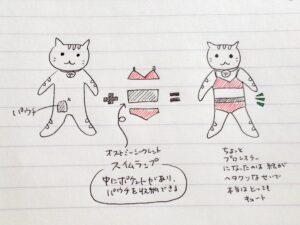 パウチ
オストミーシークレット
スイムラップ
中にポケットがあり、
パウチを収納できる
ちょっと
プロレスラー
になったのは 絵が
ヘタクソなせいで
本当はとっても
キュート